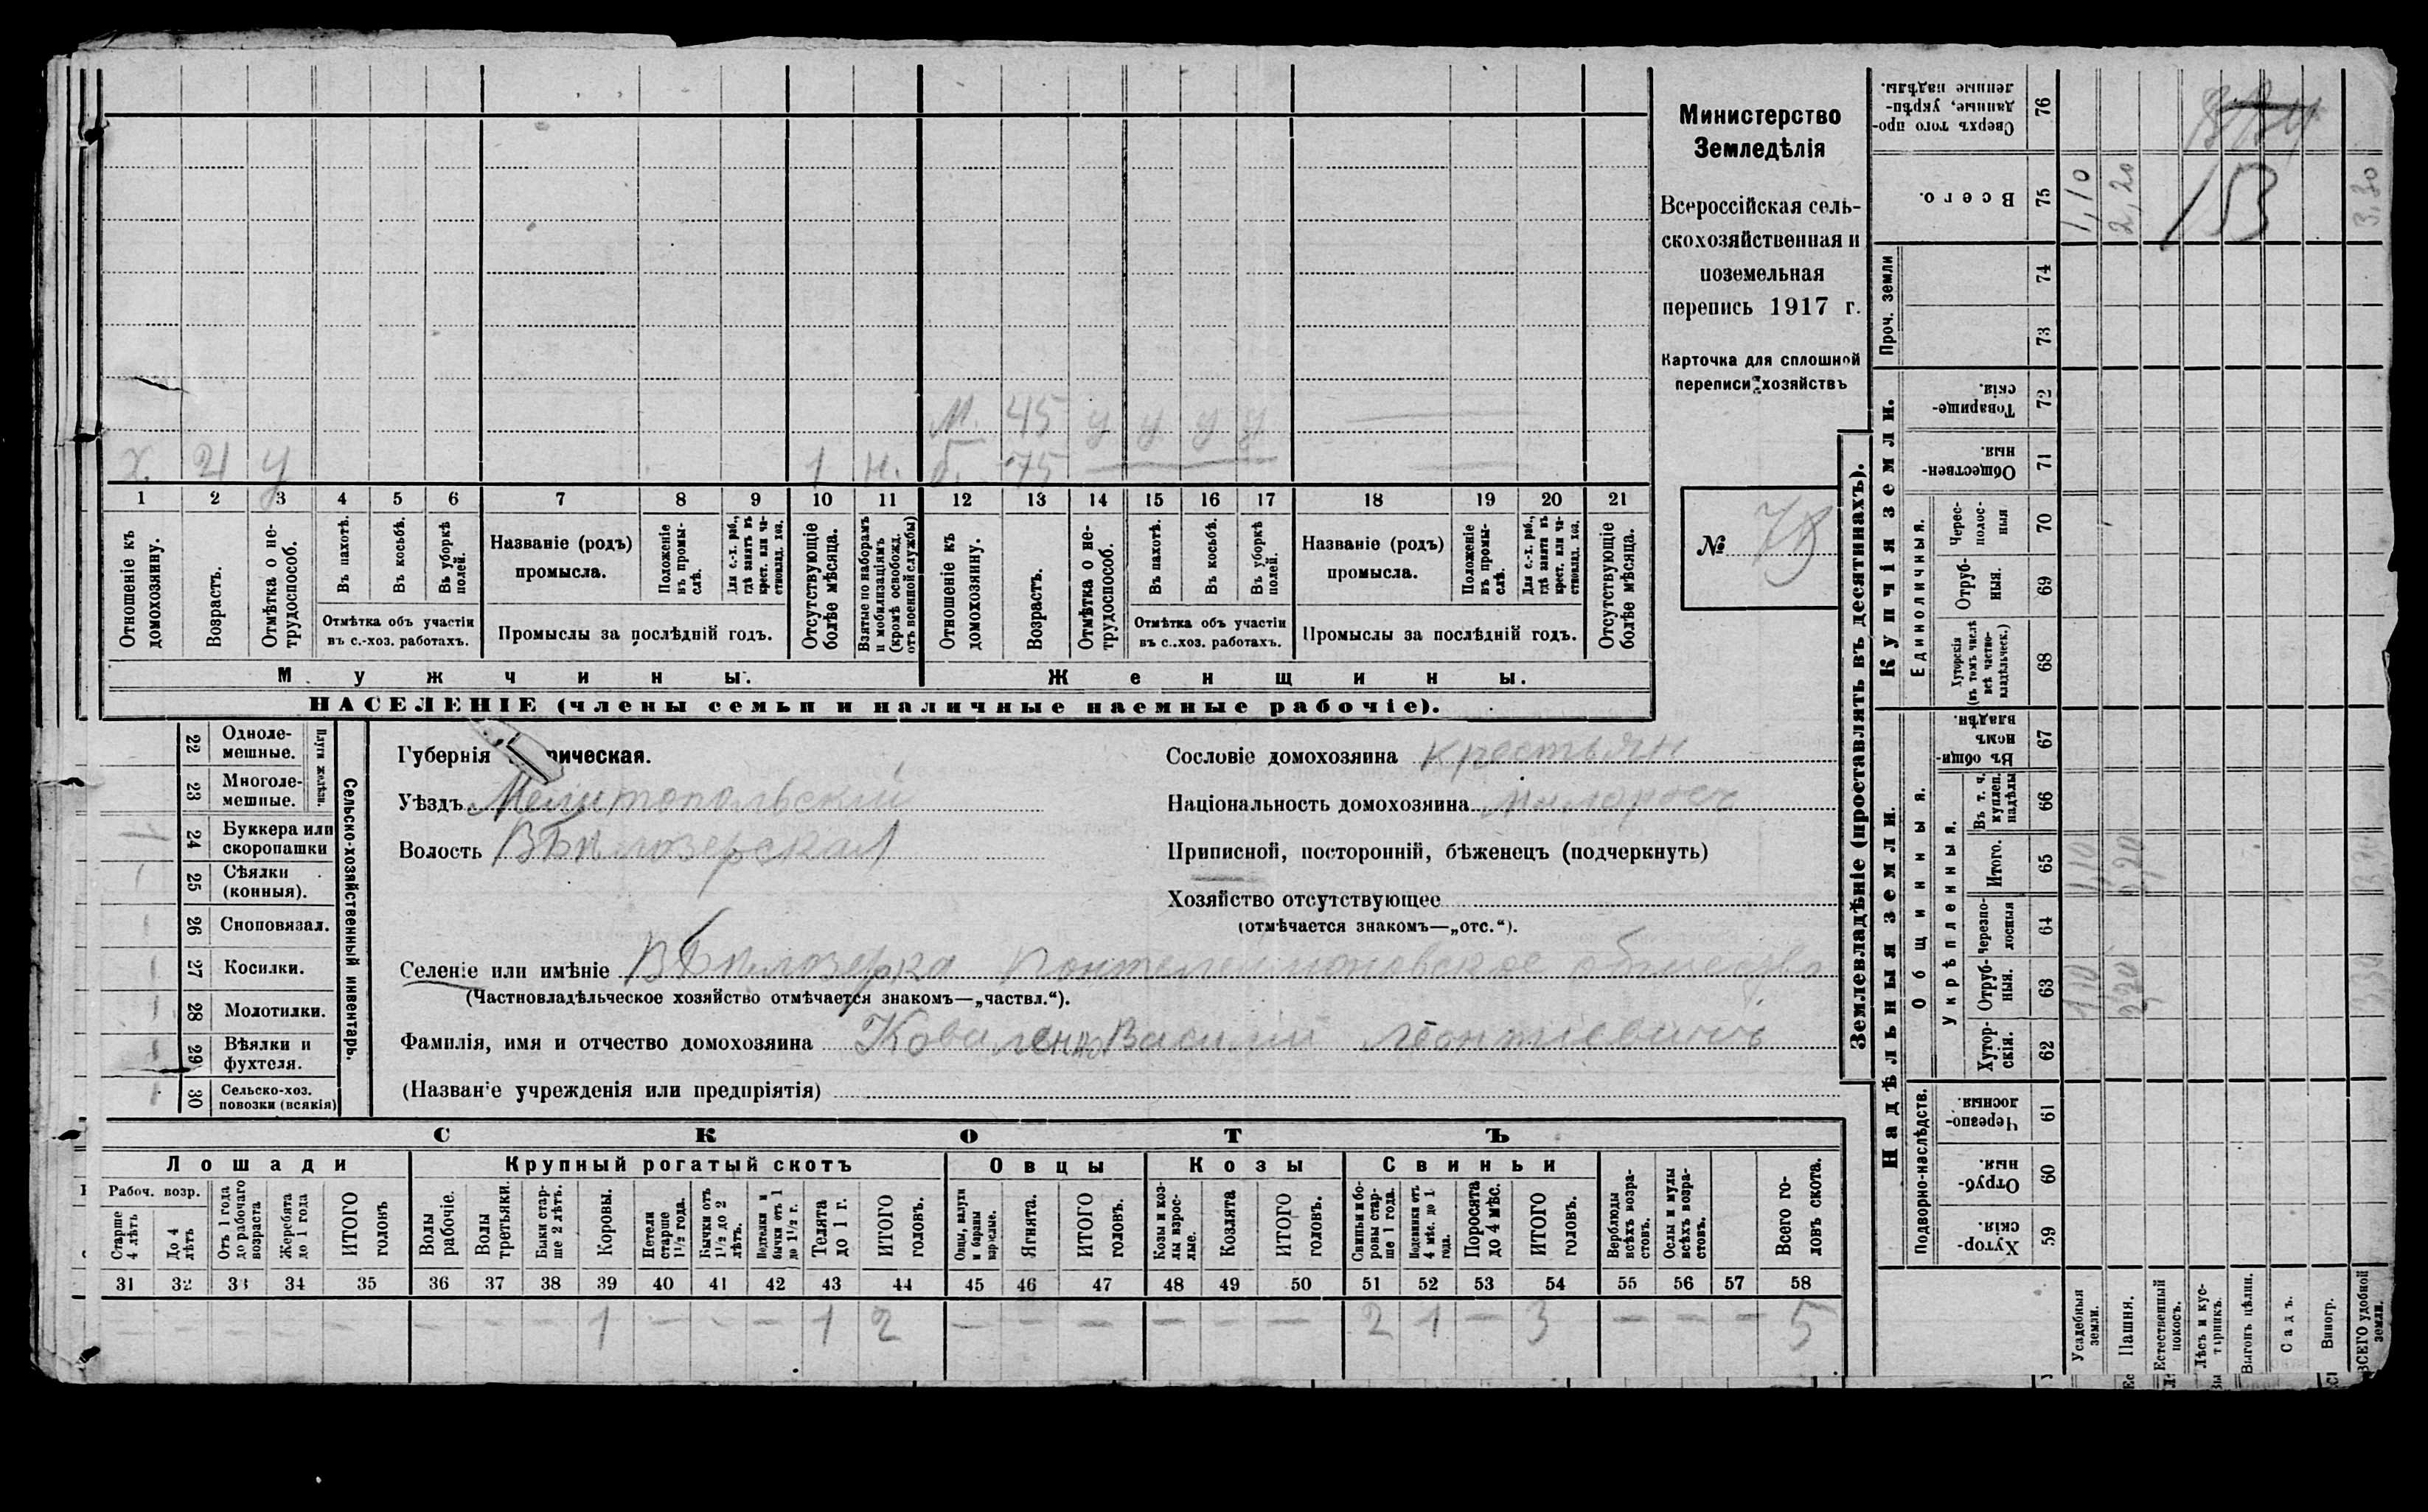 Министерство
Земледѣлія
Всероссійская сель-
скохозяйственная и
поземельная
перепись 1917 г.
Карточка для сплошной
переписи хозяйствъ
№ 78
М. 45 у у у у
х. 21 у 1 н. б. 75
1 2 3 4 5 6 7 8 9 10 11 12 13 14 15 16 17 18 19 20 21
Отношеніе къ домохозяину.
Возрастъ.
Отмѣтка о не-трудоспособ.
Въ пахотѣ.
Въ косьбѣ.
Въ уборкѣ полей.
Отмѣтка объ участіи
въ с.-хоз. работахъ.
Названіе (родъ)
промысла.
Положеніе въ промы-слѣ.
Для с.-х. раб., гдѣ занятъ въ крест. или ча-стновлад. хоз.
Промыслы за послѣдній годъ.
Отсутствующіе болѣе мѣсяца.
Взятые по наборамъ и мобилизаціямъ (кромѣ освобожд. отъ военной службы)
Отношеніе къ домохозяину.
Возрастъ.
Отмѣтка о не-трудоспособ.
Въ пахотѣ.
Въ косьбѣ.
Въ уборкѣ полей.
Отмѣтка объ участіи
въ с.-хоз. работахъ.
Названіе (родъ)
промысла.
Положеніе въ промы-слѣ.
Для с.-х. раб., гдѣ занята въ крест. или ча-стновлад. хоз.
Промыслы за послѣдній годъ.
Отсутствующіе болѣе мѣсяца.
Мужчины.
Женщины.
НАСЕЛЕНІЕ (члены семьи и наличные наемные рабочіе).
22 Одноле-
мешные.
23 Многоле-
мешные.
Плуги желѣзн.
24 Буккера или
скоропашки
25 Сѣялки
(конныя).
26 Сноповязал.
27 Косилки.
28 Молотилки.
29 Вѣялки и
фухтеля.
30 Сельско-хоз.
повозки (всякія)
Сельско-хозяйственный инвентарь.
Губернія рическая.
Уѣздъ Мелитопольскій
Волость Бѣлозерская
Сословіе домохозяина крестьян
Національность домохозяина малоросъ
Приписной, посторонній, бѣженецъ (подчеркнуть)
Хозяйство отсутствующее
(отмѣчается знакомъ—„отс.“).
Селеніе или имѣніе Бѣлозерка Пантелеймоновское общество
(Частновладѣльческое хозяйство отмѣчается знакомъ—„частвл.“).
Фамилія, имя и отчество домохозяина Коваленко Василій Леонтіевичъ
(Названіе учрежденія или предпріятія)
СКОТЪ
Лошади
Крупный рогатый скотъ
Овцы
Козы
Свиньи
Рабоч. возр.
Старше 4 лѣтъ
До 4 лѣтъ
Отъ 1 года до рабочаго возраста
Жеребята до 1 года
ИТОГО головъ
Волы рабочіе.
Волы третьяки.
Быки стар-ше 2 лѣтъ.
Коровы.
Нетели старше 1½ года.
Бычки отъ 1½ до 2 лѣтъ.
Подтелки и бычки отъ 1 до 1½ г.
Телята до 1 г.
ИТОГО головъ.
Овцы, валухи и бараны взрослые.
Ягнята.
ИТОГО головъ.
Козы и коз-лы взрос-лые.
Козлята
ИТОГО головъ.
Свиньи и бо-ровы стар-ше 1 года.
Подсвинки отъ 4 мѣс. до 1 года.
Поросята до 4 мѣс.
ИТОГО головъ.
Верблюды всѣхъ возра-стовъ.
Ослы и мулы всѣхъ возра-стовъ.
Всего го-ловъ скота.
31 32 33 34 35 36 37 38 39 40 41 42 43 44 45 46 47 48 49 50 51 52 53 54 55 56 57 58
— — — — — — — — 1 — — — 1 2 — — — — — — 2 1 — 3 — — — 5
Землевладѣніе (проставлять въ десятинахъ).
Надѣльныя земли.
Купчія земли.
Проч. земли
Подворно-наслѣдств.
Общинныя.
Укрѣпленныя.
Единоличныя.
76 Сверхъ того про-данные, укрѣп-ленные надѣлы.
75 Всего. 1,10 2,20 3,30
153
74
73
72 Товарище-скія.
71 Обществен-ныя.
70 Черес-полос-ныя
69 Отруб-ныя.
68 Хуторскія (въ томъ числѣ всѣ частно-владѣльческ.)
67 Въ общин-номъ владѣн.
66 Въ т. ч. куплен. надѣлы
65 Итого. 1,10 2,20 3,30
64 Черезпо-лосныя
63 Отруб-ныя. 1,10 2,20 3,30
62 Хутор-скія.
61 Черезпо-лосныя.
60 Отруб-ныя.
59 Хутор-скія.
Усадебныя земли.
Пашня.
Естественный покосъ.
Лѣсъ и кус-тарникъ.
Выгонъ цѣлин.
Садъ.
Виногр.
ВСЕГО удобной земли.